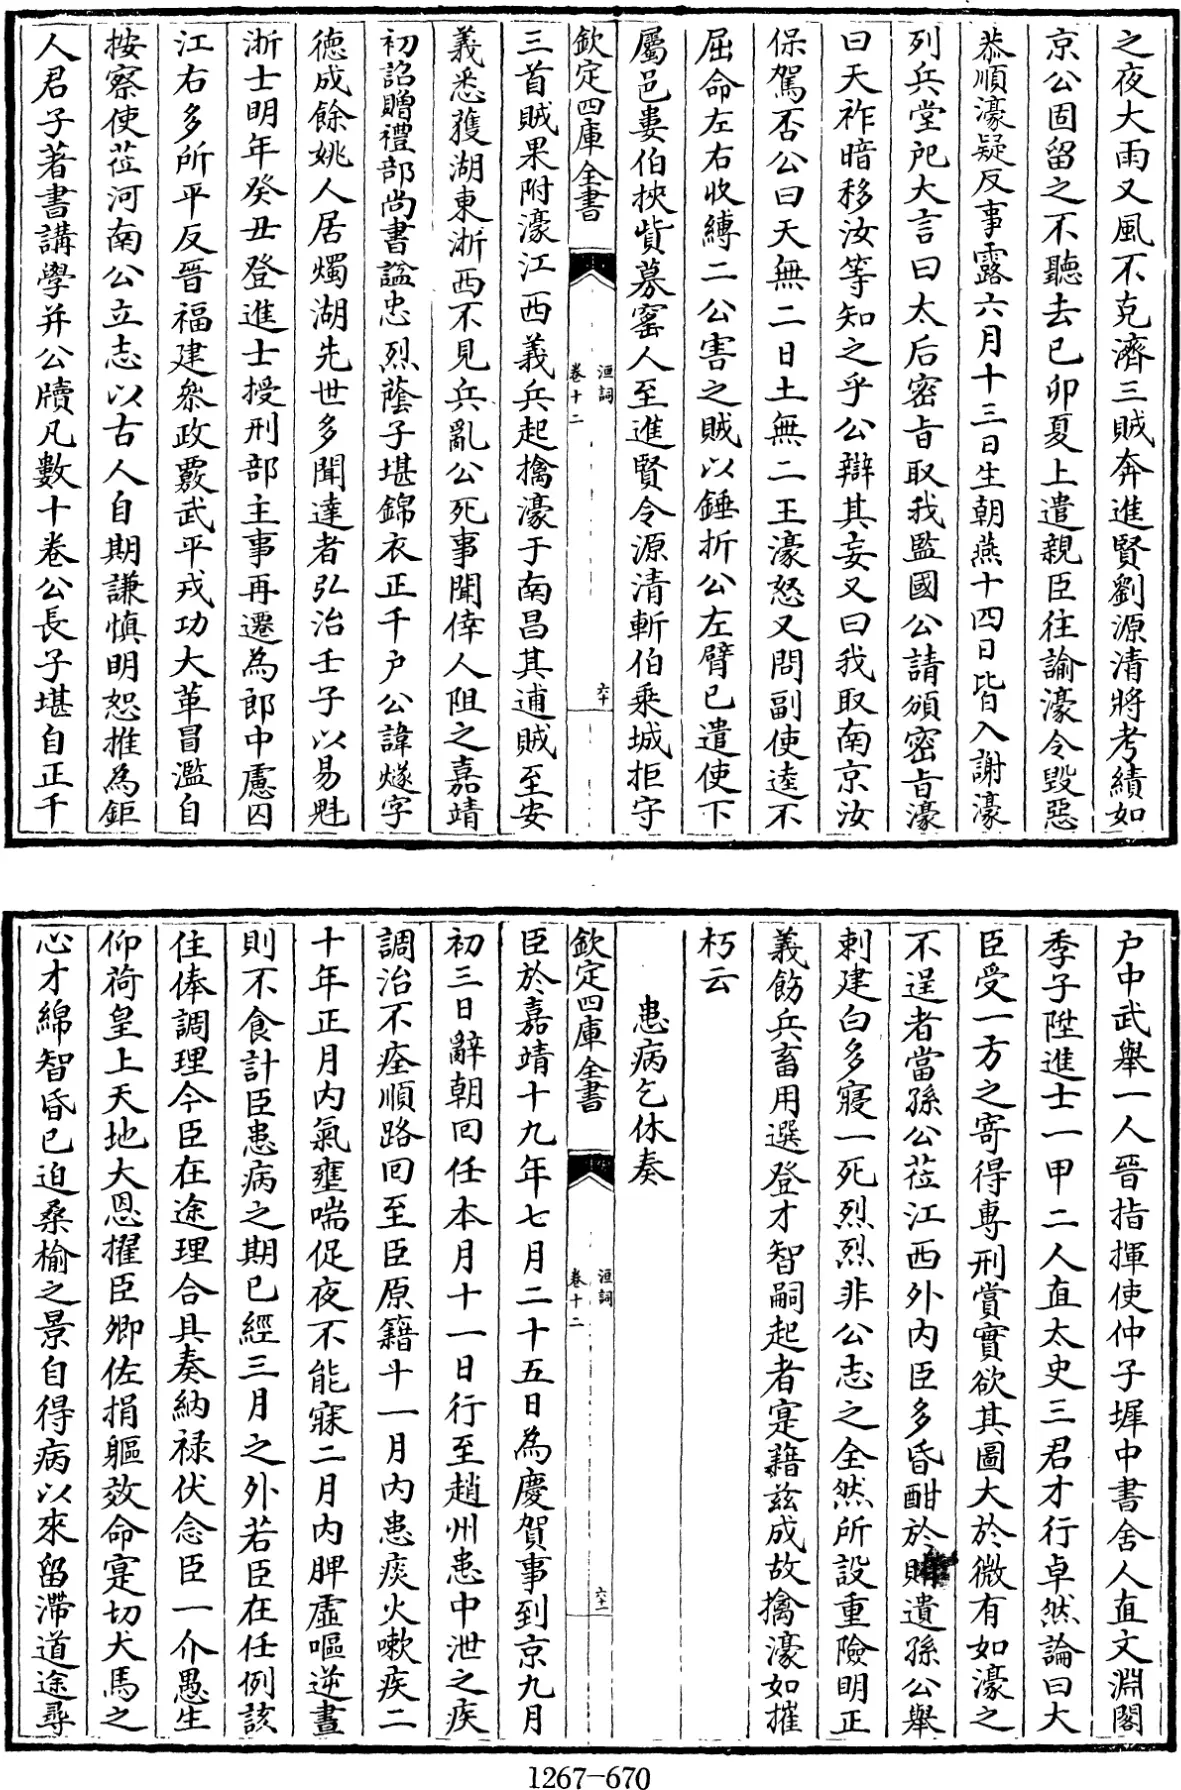 之夜大雨又風不克濟三賊奔進賢劉源清將考績如
京公固留之不聽去已卯夏上遣親臣往諭濠令毀惡
恭順濠疑反事露六月十三日生朝燕十四日皆入謝濠
列兵堂戺大言曰太后密旨取我監國公請頒密旨濠
曰天祚暗移汝等知之乎公辯其妄又曰我取南京汝
保駕否公曰天無二日土無二王濠怒又問副使逵不
屈命左右收縛二公害之賊以錘折公左臂已遣使下
屬邑婁伯挾貲募窰人至進賢令源清斬伯乘城拒守
欽定四庫全書
洹詞
卷十二
六十
三首賊果附濠江西義兵起擒濠于南昌其逋賊至安
義悉獲湖東浙西不見兵亂公死事聞倖人阻之嘉靖
初詔贈禮部尚書謚忠烈蔭子堪錦衣正千户公諱燧字
德成餘姚人居燭湖先世多聞達者弘治壬子以易魁
浙士明年癸丑登進士授刑部主事再遷為郎中慮囚
江右多所平反晉福建叅政覈武平戎功大革冒濫自
按察使莅河南公立志以古人自期謙慎明恕推為鉅
人君子著書講學并公牘凡數十卷公長子堪自正千
户中武舉一人晉指揮使仲子墀中書舍人直文淵閣
季子陞進士一甲二人直太史三君才行卓然論曰大
臣受一方之寄得專刑賞實欲其圖大於微有如濠之
不逞者當孫公莅江西外内臣多昏酣於賄遺孫公舉
刺建白多寢一死烈烈非公志之全然所設重險明正
義飭兵畜用選登才智嗣起者寔藉兹成故擒濠如摧
朽云
患病乞休奏
欽定四庫全書
洹詞
卷十二
六十一
臣於嘉靖十九年七月二十五日為慶賀事到京九月
初三日辭朝回任本月十一日行至趙州患中泄之疾
調治不痊順路回至臣原籍十一月内患痰火嗽疾二
十年正月内氣壅喘促夜不能寐二月内脾虛嘔逆晝
則不食計臣患病之期已經三月之外若臣在任例該
住俸調理今臣在途理合具奏納禄伏念臣一介愚生
仰荷皇上天地大恩擢臣卿佐捐軀效命寔切犬馬之
心才綿智昏已迫桑榆之景自得病以來留滯道途尋
1267—670